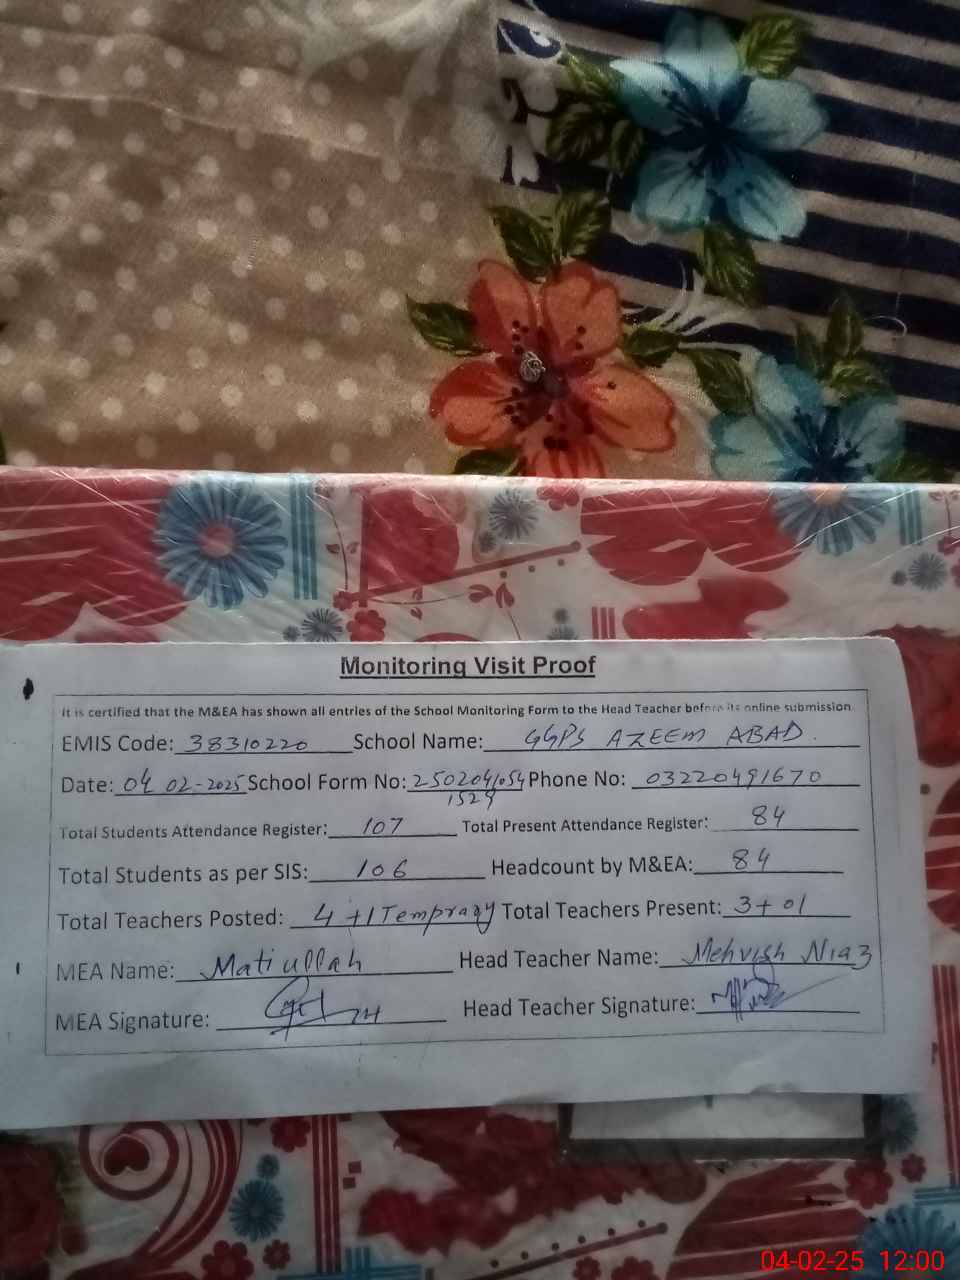 Monitoring Visit Proof
It is certified that the M&EA has shown all entries of the School Monitoring Form to the Head Teacher before its online submission.
EMIS Code: 38310220 School Name: GGPS AZEEM ABAD.
Date: 04 02-2025 School Form No: 2502041054 Phone No: 03220491670
1529
Total Students Attendance Register: 107 Total Present Attendance Register: 84
Total Students as per SIS: 106 Headcount by M&EA: 84
Total Teachers Posted: 4 +1 Temprary Total Teachers Present: 3+01
MEA Name: Matiullah Head Teacher Name: Mehvish Niaz
MEA Signature: Head Teacher Signature:
04-02-25 12:00